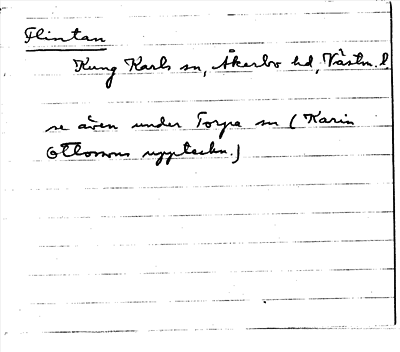 Flintan
Kung Karls sn, Åkerbo hd, Västm. l
se även under Torpa sn (Karin
Ottosons uppteckn.)